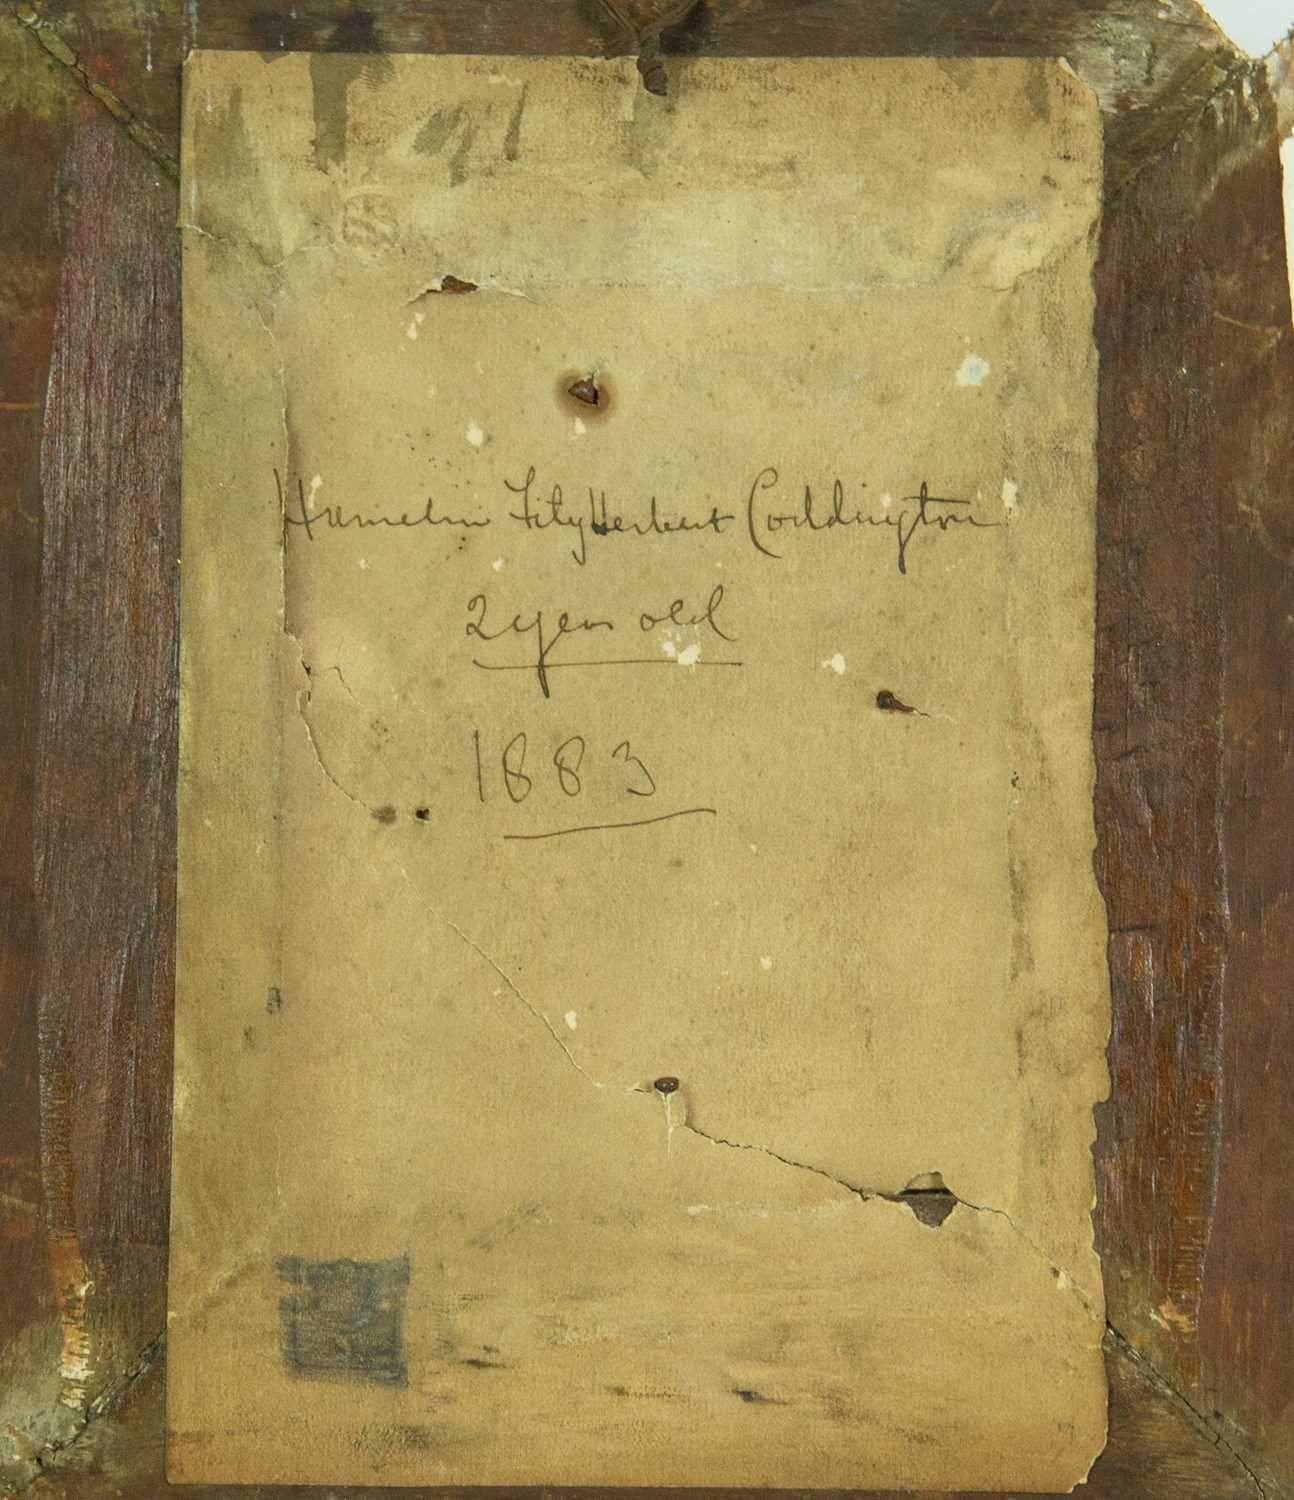 Hamelin FitzHerbert Coddington
2 year old
1883